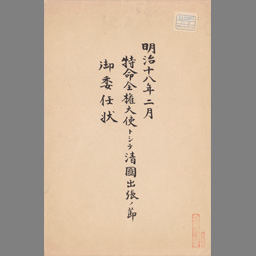 明治十八年二月
特命全権大使トシテ清國出張ノ節
御委任状